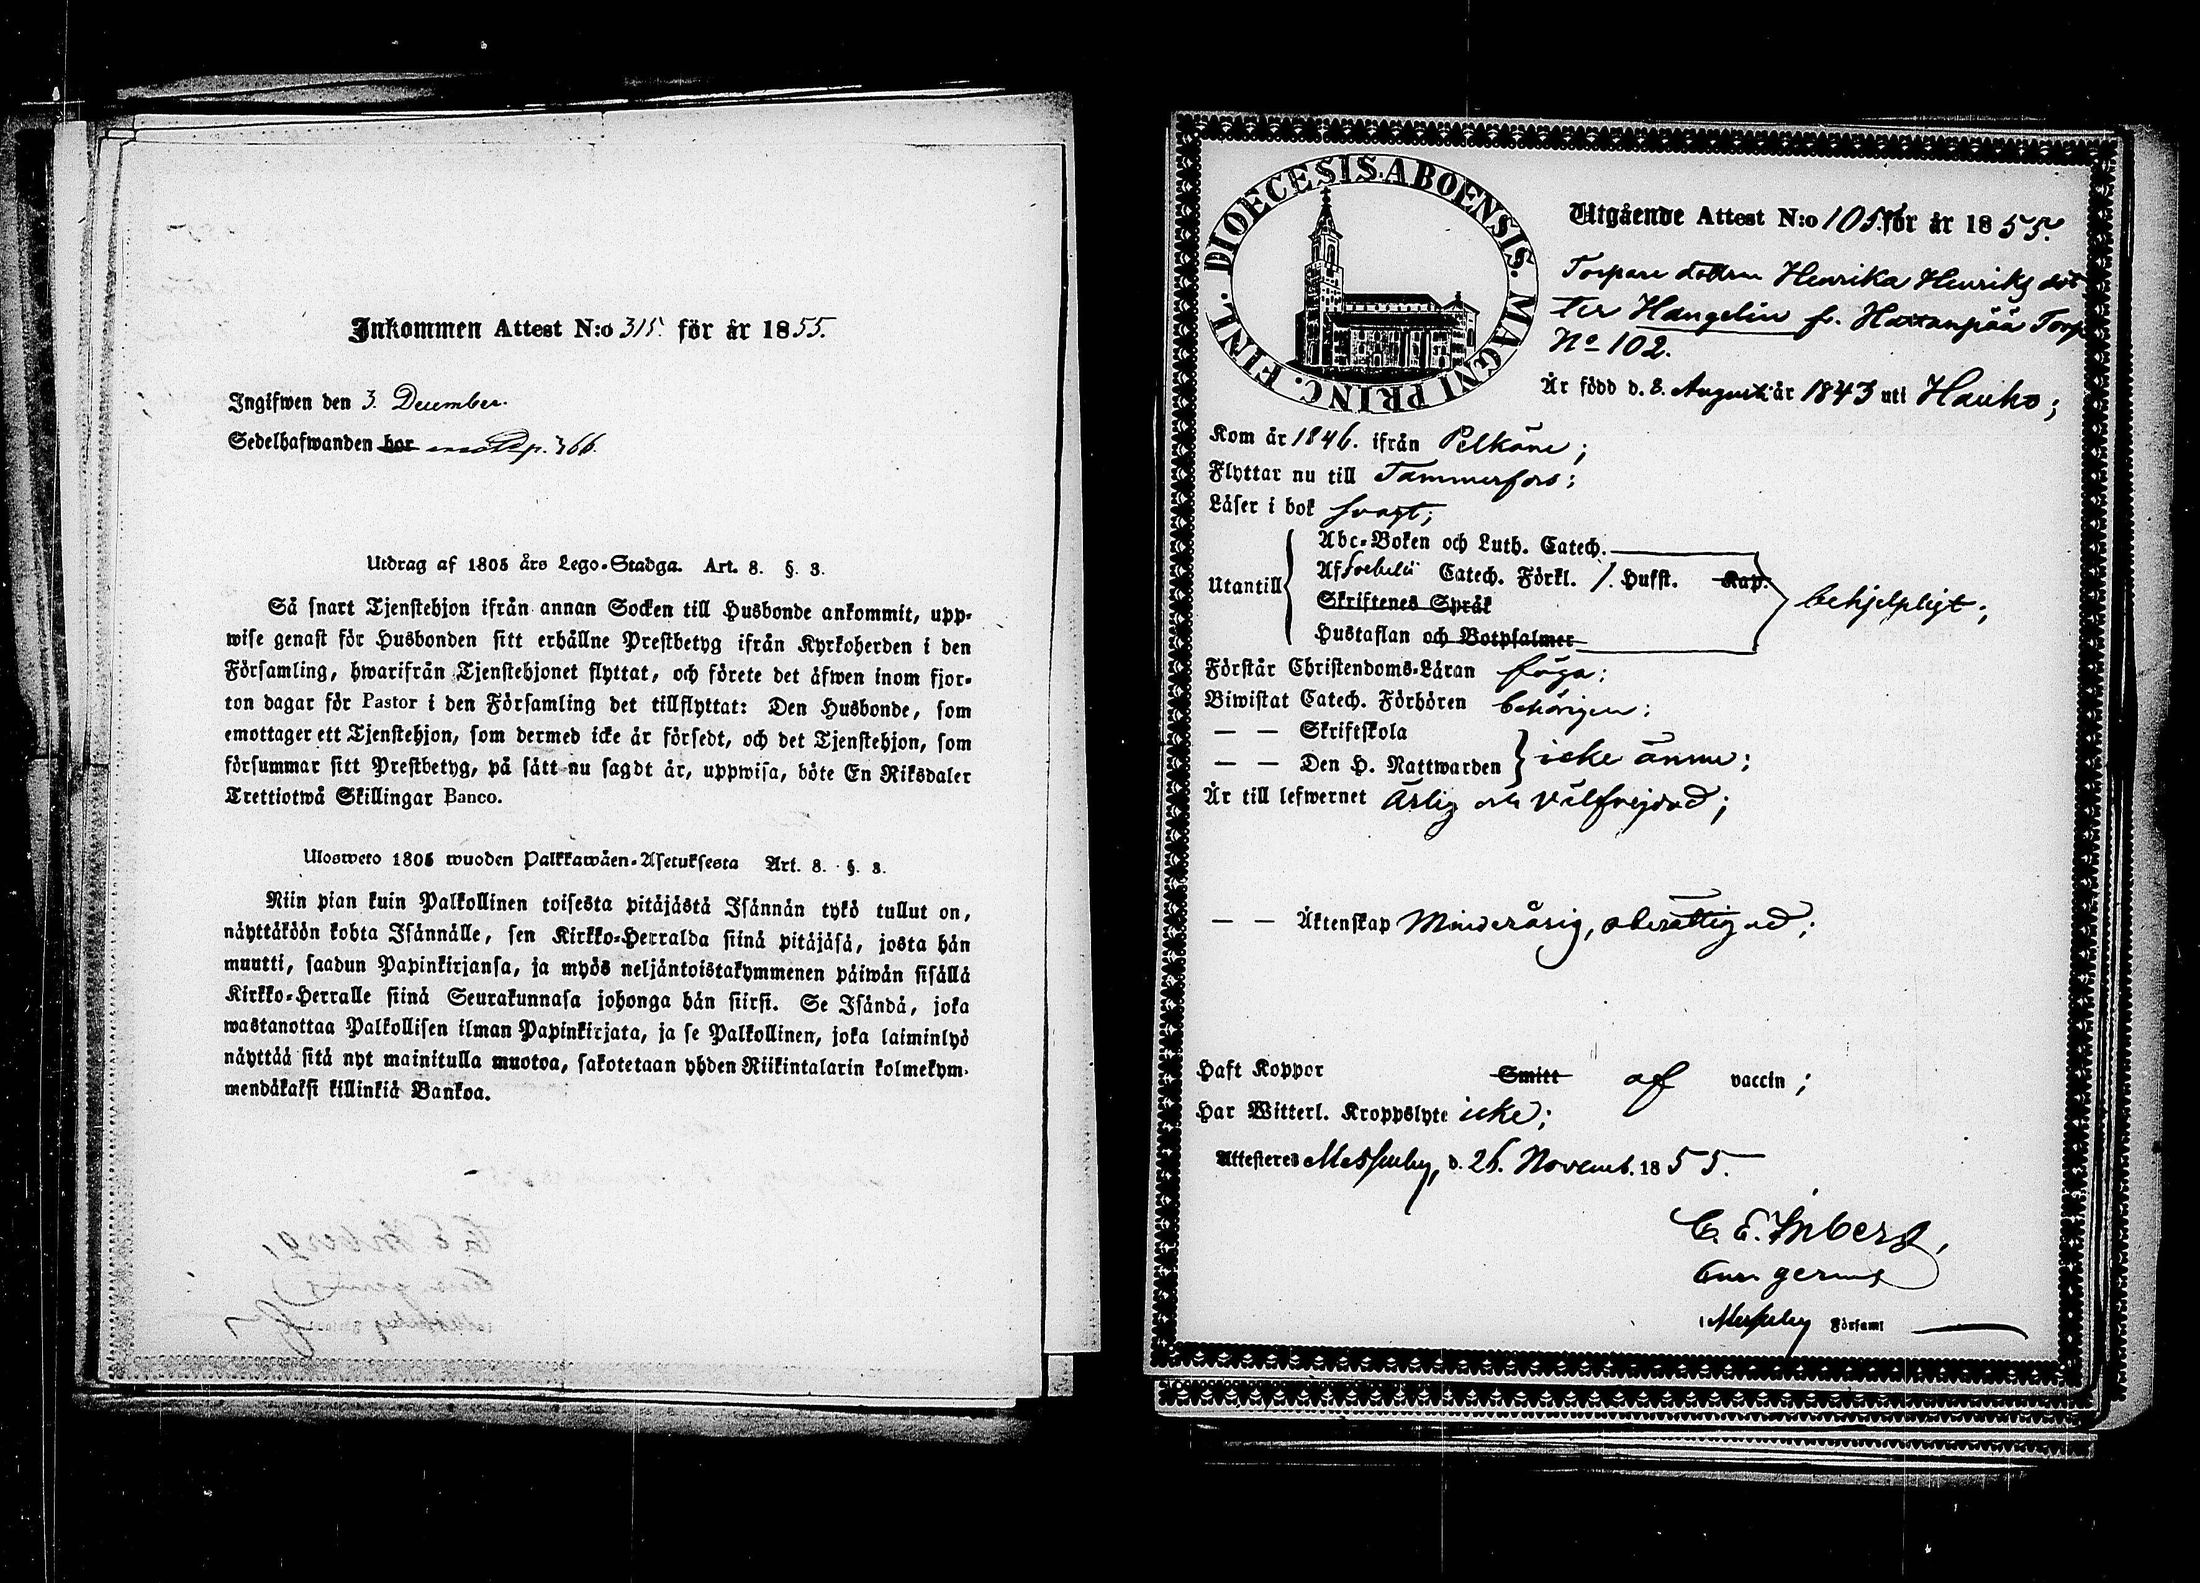 Inkommen Attest N:o 315. för år 1855.
Ingifwen den 3. December.
Sedelhafwanden bor p. 366.
Utdrag af 1805 års Lego-Stadga. Art. 8. §. 3.
Så snart Tjenstehjon ifrån annan Socken till Husbonde ankommit, upp-
wise genast för Husbonden sitt erhållne Prestbetyg ifrån Kyrkoherden i den
Församling, hwarifrån Tjenstehjonet flyttat, och förete det äfwen inom fjor-
ton dagar för Pastor i den Församling det tillflyttat: Den Husbonde, som
emottager ett Tjenstehjon, som dermed icke är försedt, och det Tjenstehjon, som
försummar sitt Prestbetyg, på sätt nu sagdt är, uppwisa, böte En Riksdaler
Trettiotwå Skillingar Banco.
Ulosweto 1805 wuoden Palkkawäen-Asetuksesta Art. 8. §. 3.
Niin pian kuin Palkollinen toisesta pitäjästä Isännän tykö tullut on,
näyttäköön kohta Isännälle, sen Kirkko-Herralda siinä pitäjäsä, josta hän
muutti, saadun Papinkirjansa, ja myös neljäntoistakymmenen päiwän sisällä
Kirkko-Herralle siinä Seurakunnasa johonga hän siirsi. Se Isändä, joka
wastanottaa Palkollisen ilman Papinkirjata, ja se Palkollinen, joka laiminlyö
näyttää sitä nyt mainitulla muotoa, sakotetaan yhden Riikintalarin kolmekym-
mendäkaksi killinkiä Bankoa.
DIOECESIS. ABOENSIS. MAGNI PRINC. FINL.
Utgående Attest N:o 105. för år 1855.
Torpare dottren Henrika Henriks dot
ter Hangelin fr. Hattanpää Torp
No 102.
Är född d. 8. Augusti år 1843 uti Hauho;
Kom år 1846. ifrån Pelkäne;
Flyttar nu till Tammerfors;
Läser i bok svagt;
Abc-Boken och Luth. Catech.
Utantill Af Svebelii Catech. Förkl. 1. Hufst. Kap.
Skriftenes Språk
behjelpligt;
Hustaflan och Botpsalmer
Förstår Christendoms-Läran föga;
Biwistat Catech. Förhören behörigen;
— — Skriftskola
— — Den H. Nattwarden icke ännu;
Är till lefwernet ärlig och välfrejdad;
— — Äktenskap Minderårig, oberättigad;
Haft Koppor Smitt af vaccin;
Har Witterl. Kroppslyte icke;
Attesteres Messuby, d. 26. Novemb. 1855.
C. E. Inberg,
Cur. gerens
i Messuby Församl